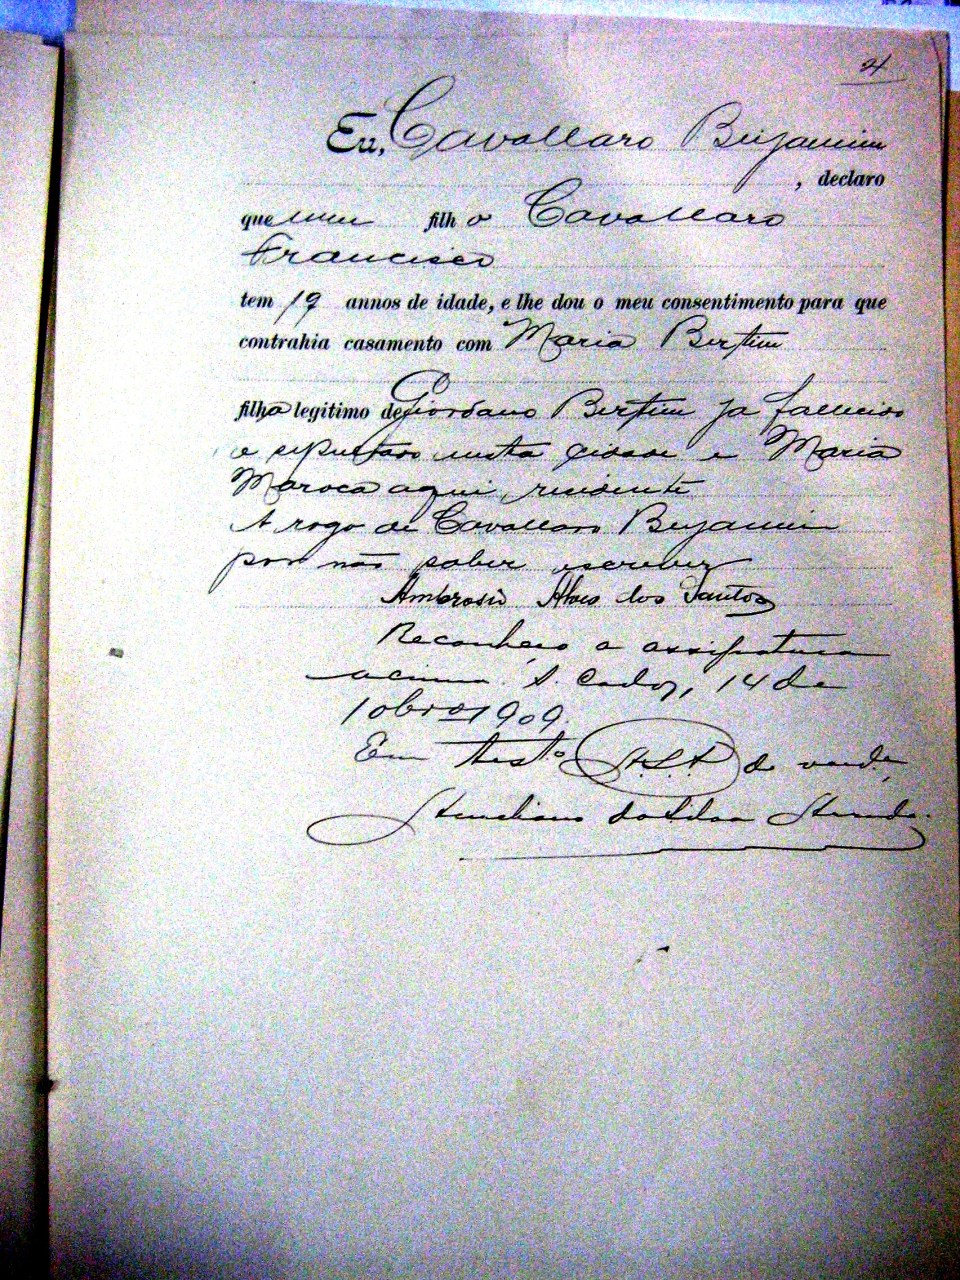 4
Eu, Cavallaro Benjamim
, declaro
que meu filho Cavallaro
Francisco
tem 19 annos de idade, e lhe dou o meu consentimento para que
contrahia casamento com Maria Bertini
filha legitimo de Giordano Bertini ja fallecido
e sepultado nesta cidade e Maria
Maroca aqui residente
A rogo de Cavallaro Benjamim
por não saber escrever
Ambrosio Alves dos Santos
Reconheço a assignatura
acima. S. Carlos, 14 de
10bro 1909.
Em testo da verde
da Silva